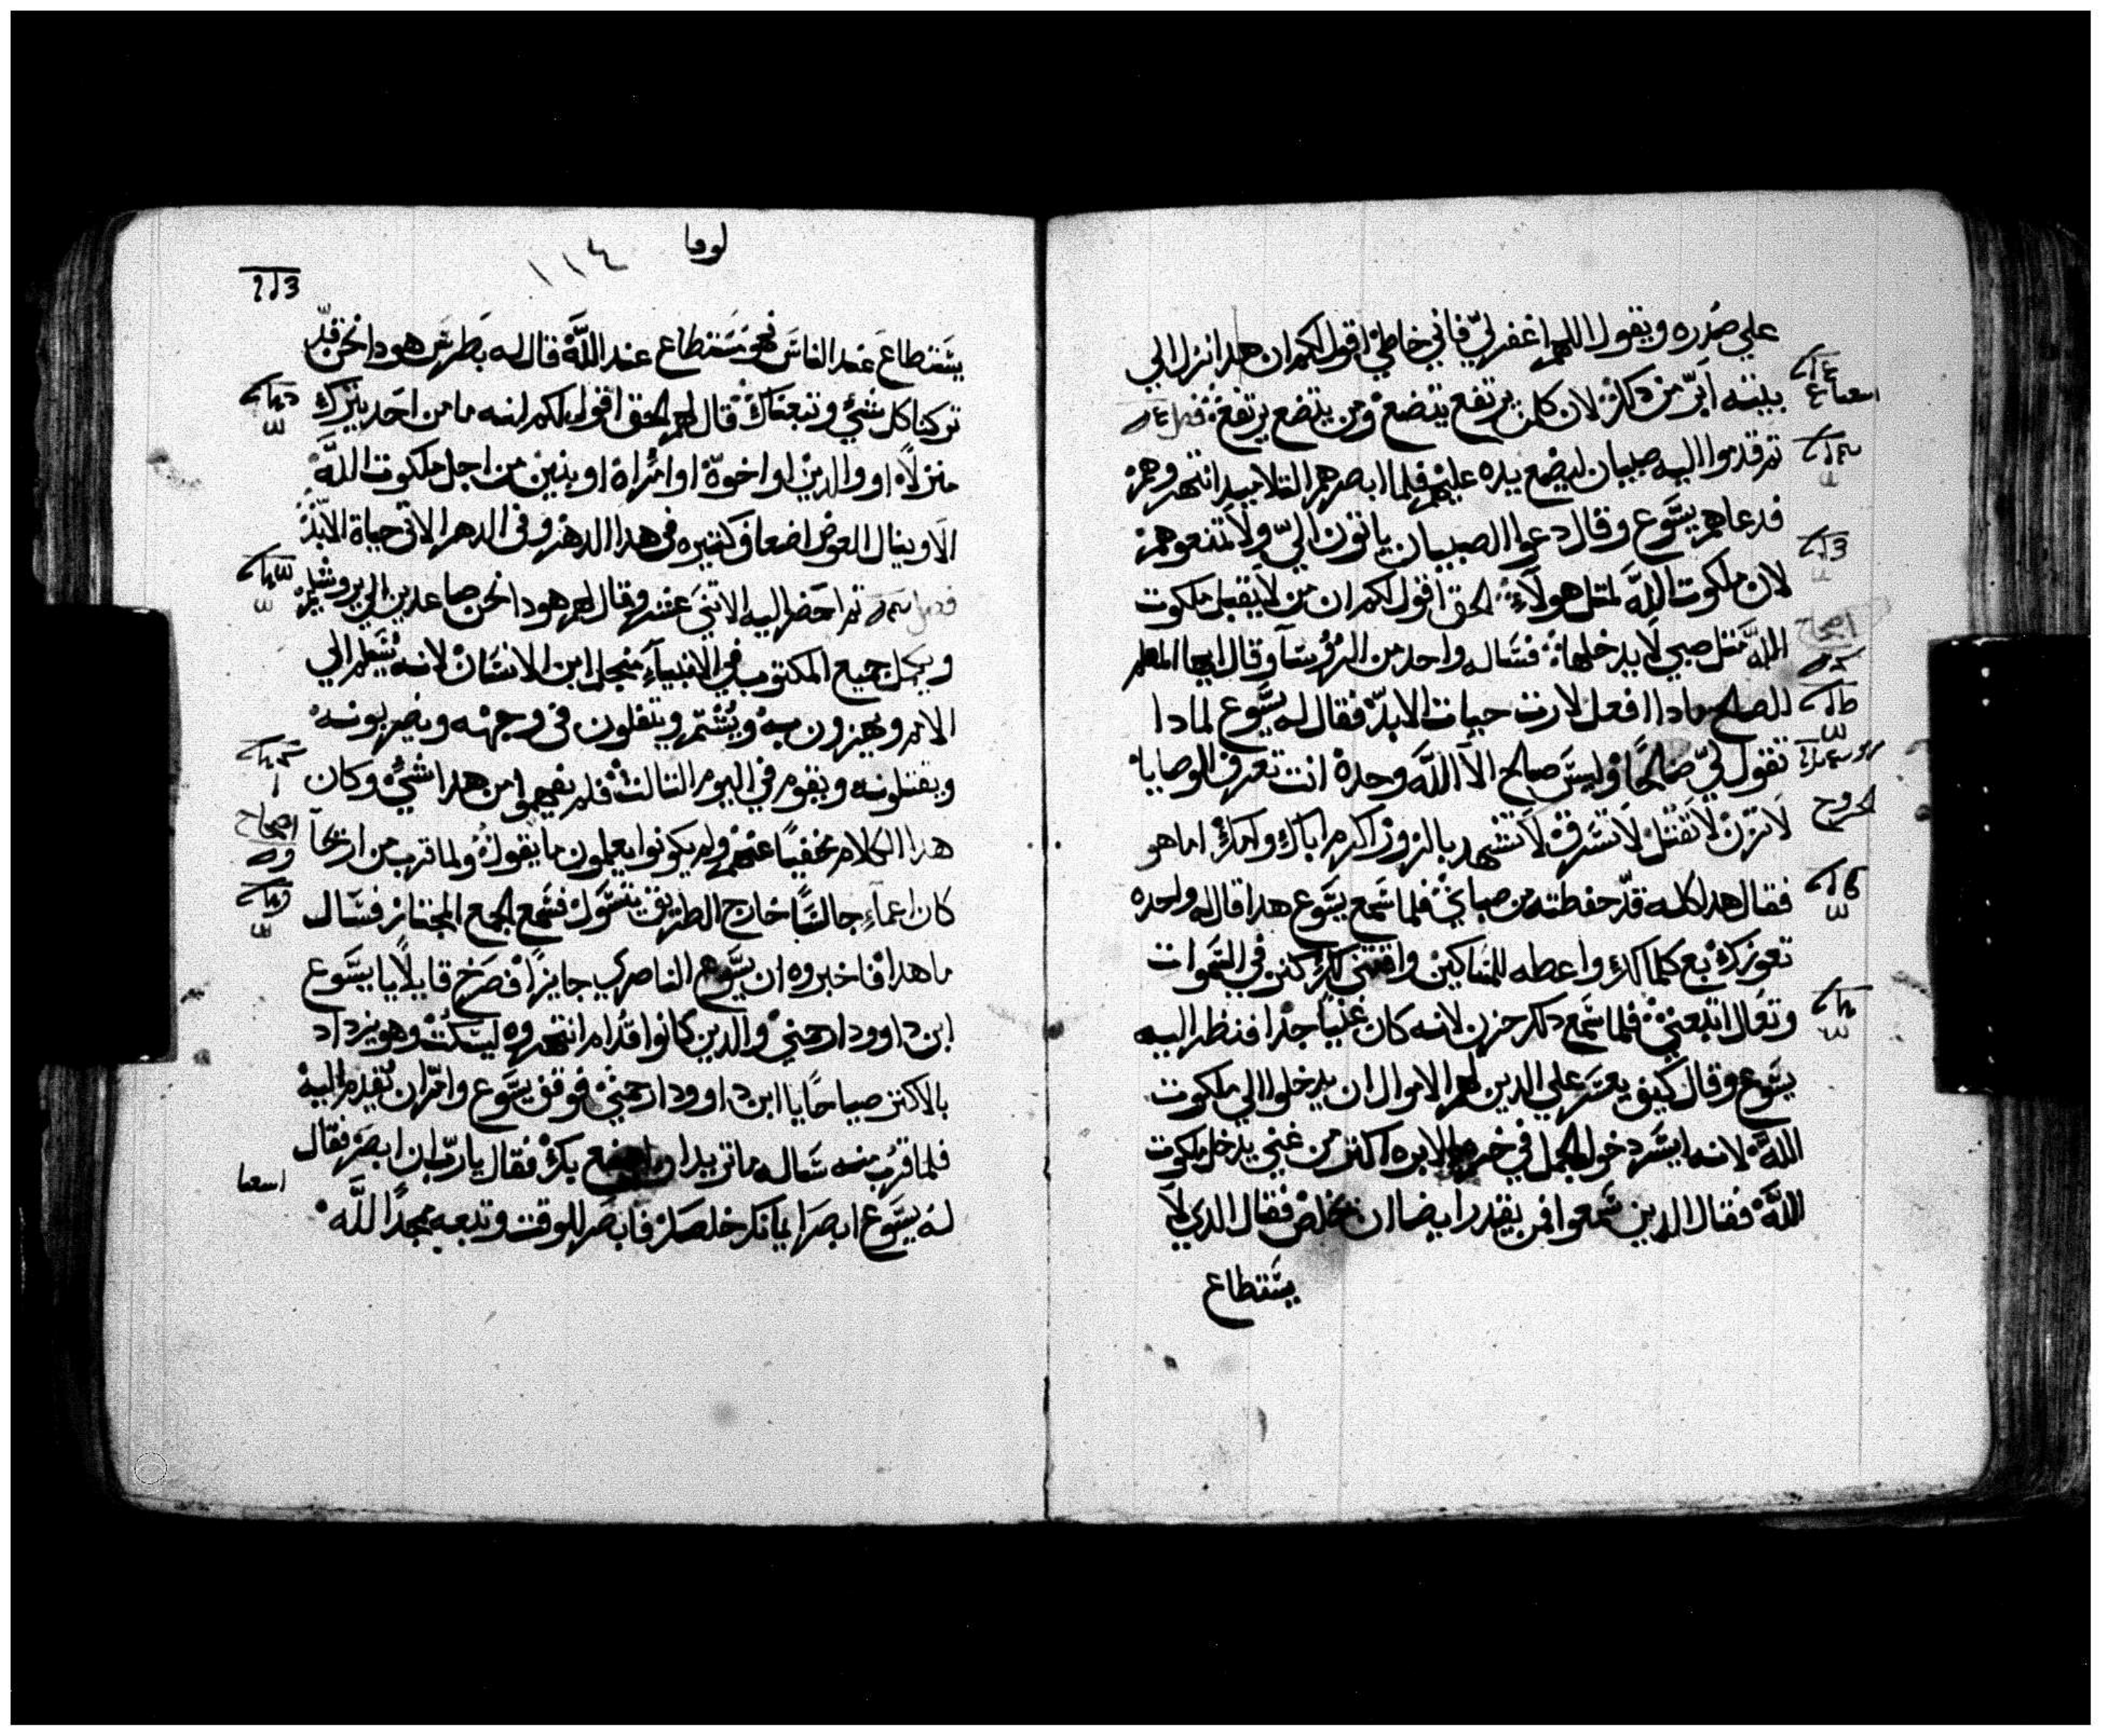 علي صدره ويقول اللهم اغفر لي فاني خاطي اقول لكم ان هدا نزل الي
بيته ابر من دكك لان كلمن يرتفع يتضع ومن يتضع يرتفع
تم قدموا اليه صبيان ليضع يده عليهم فلما ابصرهم التلاميد انتهروهم
فدعاهم يسوع وقال دعوا الصبيان ياتون الي ولا تمنعوهم
لان ملكوت الله لمتل هولاء الحق اقول لكم ان من لا يقبل ملكوت
الله متل صبي لا يدخلها فساله واحد من الروسا وقال ايها المعلم
الصالح مادا افعل لارت حيات الابد فقال له يسوع لمادا
تقول لي صالحا وليس صالح الا الله وحده انت تعرف الوصايا
لا تزن لا تقتل لا تسرق لا تشهد بالزور اكرم اباك وامك اما هو
فقال هدا كله قد حفظته من صباي فلما سمع يسوع هدا قال له واحده
تعوزك بع كلما لك واعطه للمساكين واقتني لك كنز في السموات
وتعال اتبعني فلما سمع دلك حزن لانه كان غنيا جدا فنظر اليه
يسوع وقال كيف يعسر علي الدين لهم الاموال ان يدخلوا الي ملكوت
الله لانه ايسر دخول الجمل في خرم الابره اكتر من غني يدخل ملكوت
الله فقال الدين سمعوا فمن يقدر ايضا ان يخلص فقال الدي لا
يستطاع
لوقا
١١٤
يستطاع عند الناس فهو مستطاع عند الله قال له بطرس هودا نحن قد
تركنا كل شي وتبعناك قال لهم الحق اقول لكم انه ما من احد يترك
منزلا او والدين او اخوة او امراة او بنين من اجل ملكوت الله
الا وينال العوض اضعاف كتيره في هدا الدهر وفي الدهر الاتي حياة الابد
تم احضر اليه الاتني عشر وقال لهم هودا نحن صاعدين الي يروشليم
ويكمل جميع المكتوب في الانبياء من اجل ابن الانسان لانه يسلم الي
الامم ويهزون به ويشتم ويتفلون في وجهه ويضربونه
ويقتلونه ويقوم في اليوم التالت فلم يفهموا من هدا شي وكان
هدا الكلام مخفيا عنهم ولم يكونوا يعلمون ما يقول ولما قرب من اريحا
كان اعماء جالسا خارج الطريق يتسول فسمع الجمع المجتاز فسال
ما هدا فاخبروه ان يسوع الناصري جايز فصرخ قايلا يا يسوع
ابن داوود ارحمني والدين كانوا قدام انتهروه ليسكت وهو يزداد
بالاكتر صياحا يا ابن داوود ارحمني فوقف يسوع وامر ان يقدم اليه
فلما قرب منه ساله ما تريد ان اصنع بك فقال يا رب ان ابصر فقال
له يسوع ابصر ايمانك خلصك فابصر للوقت وتبعه مجدا لله